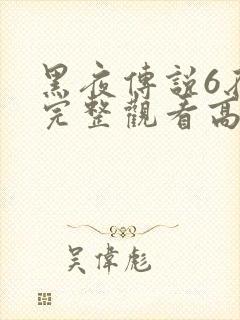 黑夜傳說6
完整觀看高
吳偉彪